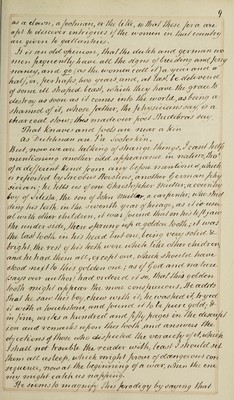 9
as a clown, a footman, or the like, so that these fora are
apt to discover intrigues if the women in that country
are given to gallantries.
It is an old opinion, that the dutch and german wo
men frequently have all the signs of breeding and preg
nancy, and go (as the women call it) a year and a
half, or, perhaps, two years, and, at last be delivered
of some ill shaped beast, which they have the grace to
destroy as soon as it comes into the world, as being a
shamed of it, whose father, the physicians say, is a
charcoal stove; this made our poet Hudibras say.
That Knaves and fools are near a kin
As Dutchman are
But, now we are talking of strange things, I cant help
mentioning another odd appearance in nature, tho'
of a different kind from any before mentioned, which
is reported by Jacobus Horstius, another German phy
sician; he tells us of one Christopher Muller, a country
boy of Silesia, the son of John Muller, a carpenter, who shed
ding his teeth in the seventh year of his age, as it is usu
al with other children, it was found that on his left jaw
the under side, there sprung up a golden tooth; it was
the last tooth in his head but one, being very solid &
bright, the rest of his teeth were which like other children
and he had them all, except one, which should have
stood next to this golden one; as if God and nature
says our author, had ordered it so, that this golden
tooth might appear the more conspicuous. He adds
that he saw this boy, chew with it, he washed it, tryed
it with a touchstone, and found it to be pure gold; &
in fine, writes a hundred and fifty pages in the descript
ion and remarks upon this tooth, and answers the
objections of those who disputed the veracity of it, which
I shall not trouble the reader with, least I should set
them all asleep, which might prove of dangerous con
sequence, now at the beginning of a war, when the ene
my might catch us napping.
He seems to magnify this prodigy by saying that